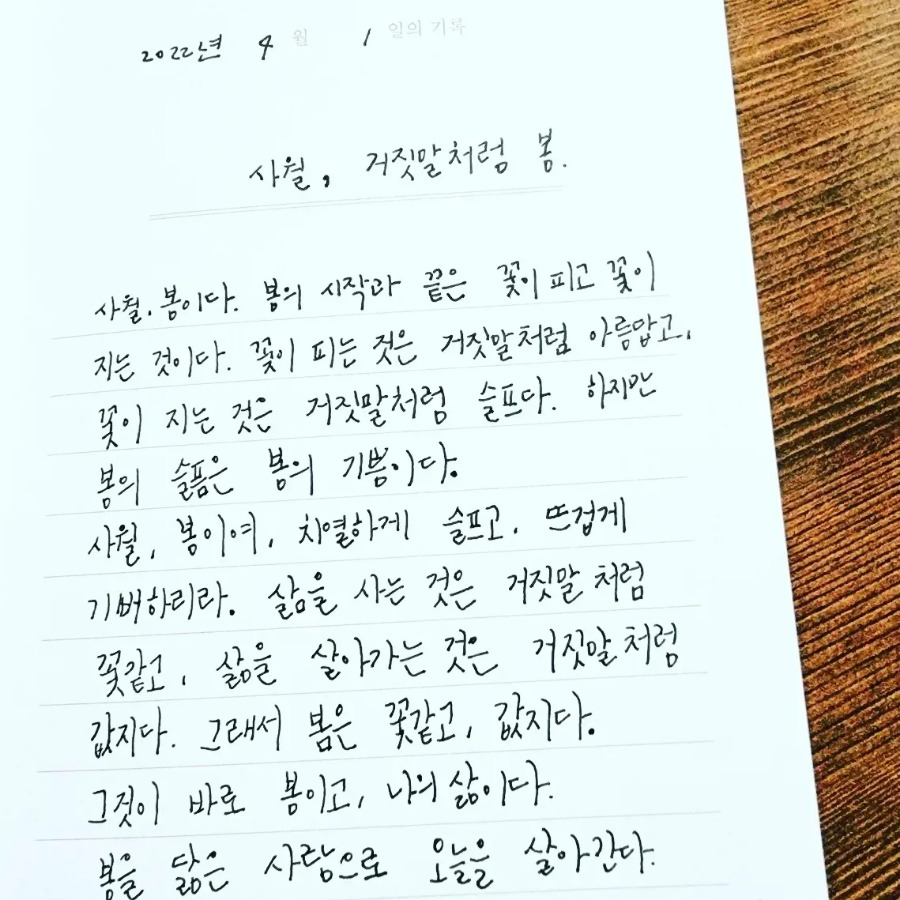 2022년 4월 1일의 기록
사월, 거짓말처럼 봄.
사월. 봄이다. 봄의 시작과 끝은 꽃이 피고 꽃이
지는 것이다. 꽃이 피는 것은 거짓말처럼 아름답고,
꽃이 지는 것은 거짓말처럼 슬프다. 하지만
봄의 슬픔은 봄의 기쁨이다.
사월, 봄이여, 치열하게 슬프고, 뜨겁게
기뻐하리라. 삶을 사는 것은 거짓말처럼
꽃같고, 삶을 살아가는 것은 거짓말처럼
값지다. 그래서 봄은 꽃같고, 값지다.
그것이 바로 봄이고, 나의 삶이다.
봄을 닮은 사람으로 오늘을 살아간다.